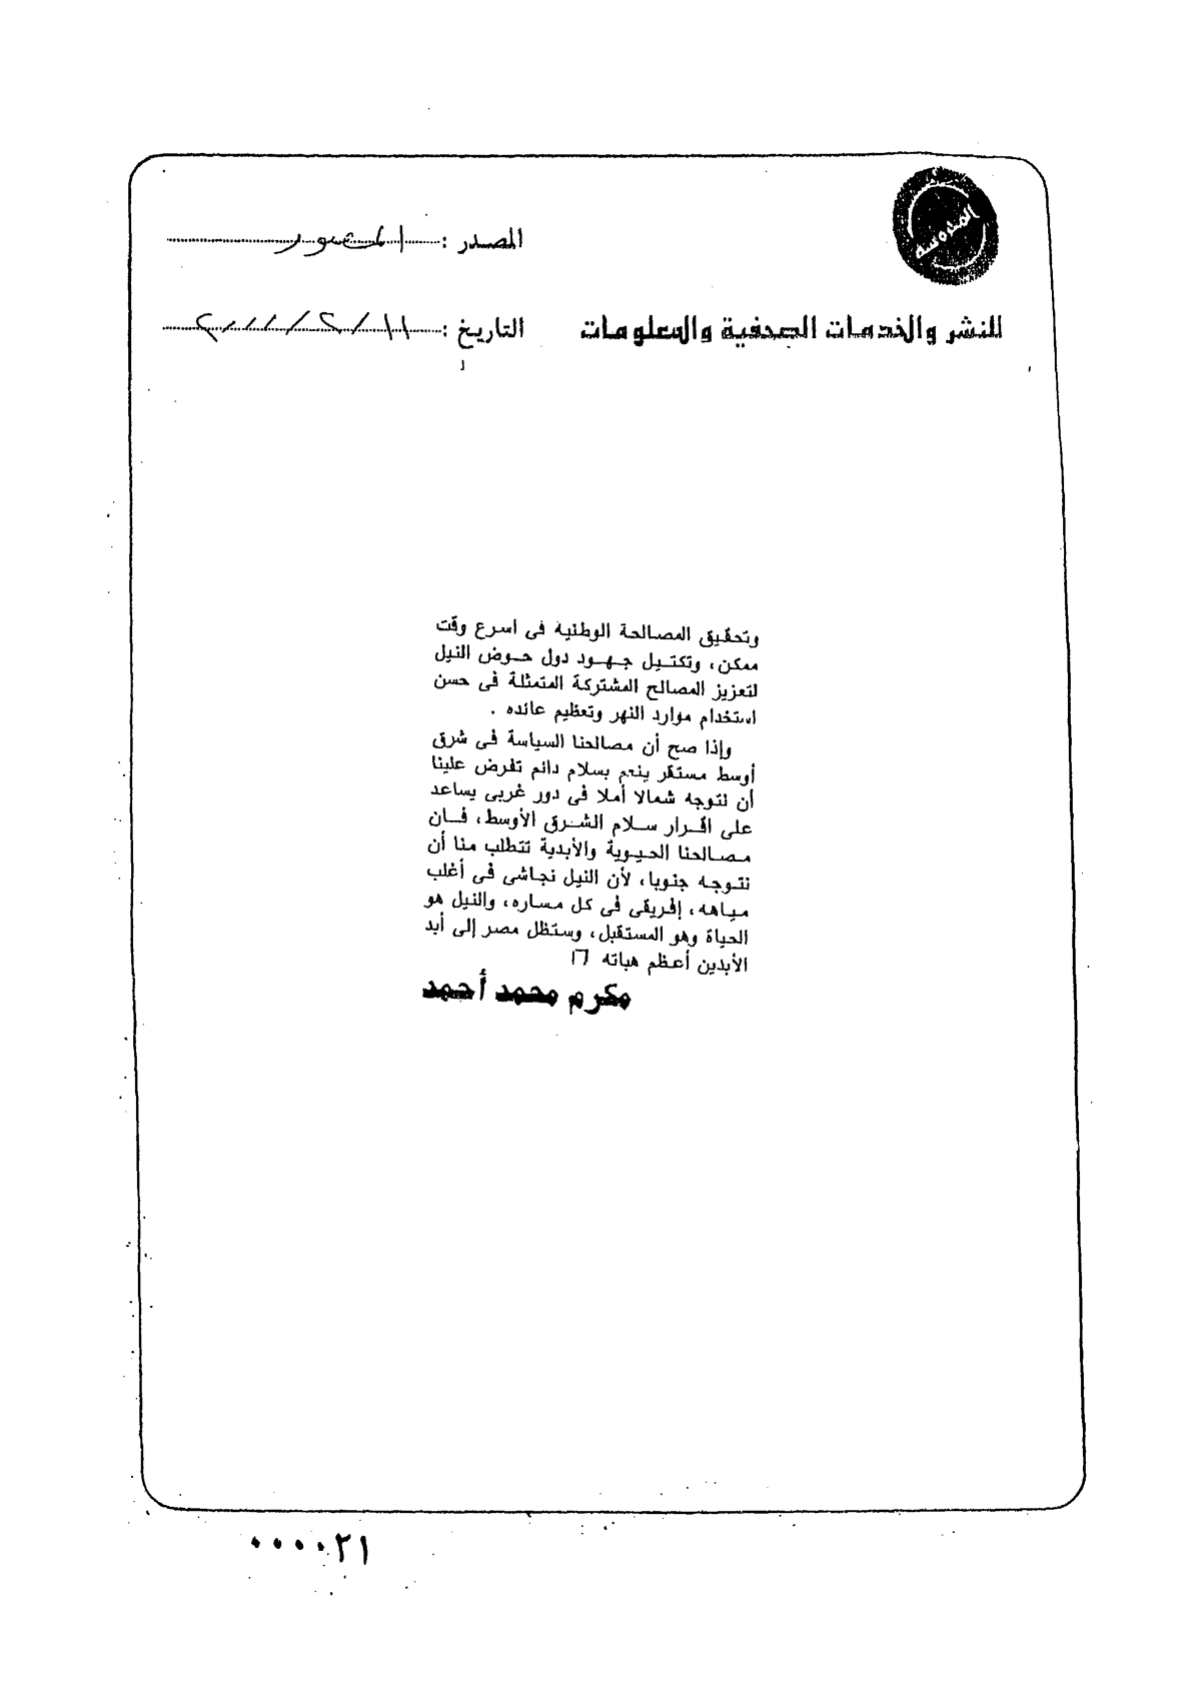 المدوسة
المصدر : المصور
للنشر والخدمات الصحفية والمعلومات
التاريخ : ١١ / ٢ /
وتحقيق المصالحة الوطنية فى اسرع وقت
ممكن، وتكتيل جهود دول حوض النيل
لتعزيز المصالح المشتركة المتمثلة فى حسن
استخدام موارد النهر وتعظيم عائده .
وإذا صح أن مصالحنا السياسة فى شرق
أوسط مستقر ينعم بسلام دائم تفرض علينا
أن نتوجه شمالا أملا فى دور غربى يساعد
على اقرار سلام الشرق الأوسط، فان
مصالحنا الحيوية والأبدية تتطلب منا أن
نتوجه جنوبا، لأن النيل نجاشى فى أغلب
مياهه، إفريقى فى كل مساره، والنيل هو
الحياة وهو المستقبل، وستظل مصر إلى أبد
الأبدين أعظم هباته
مكرم محمد أحمد